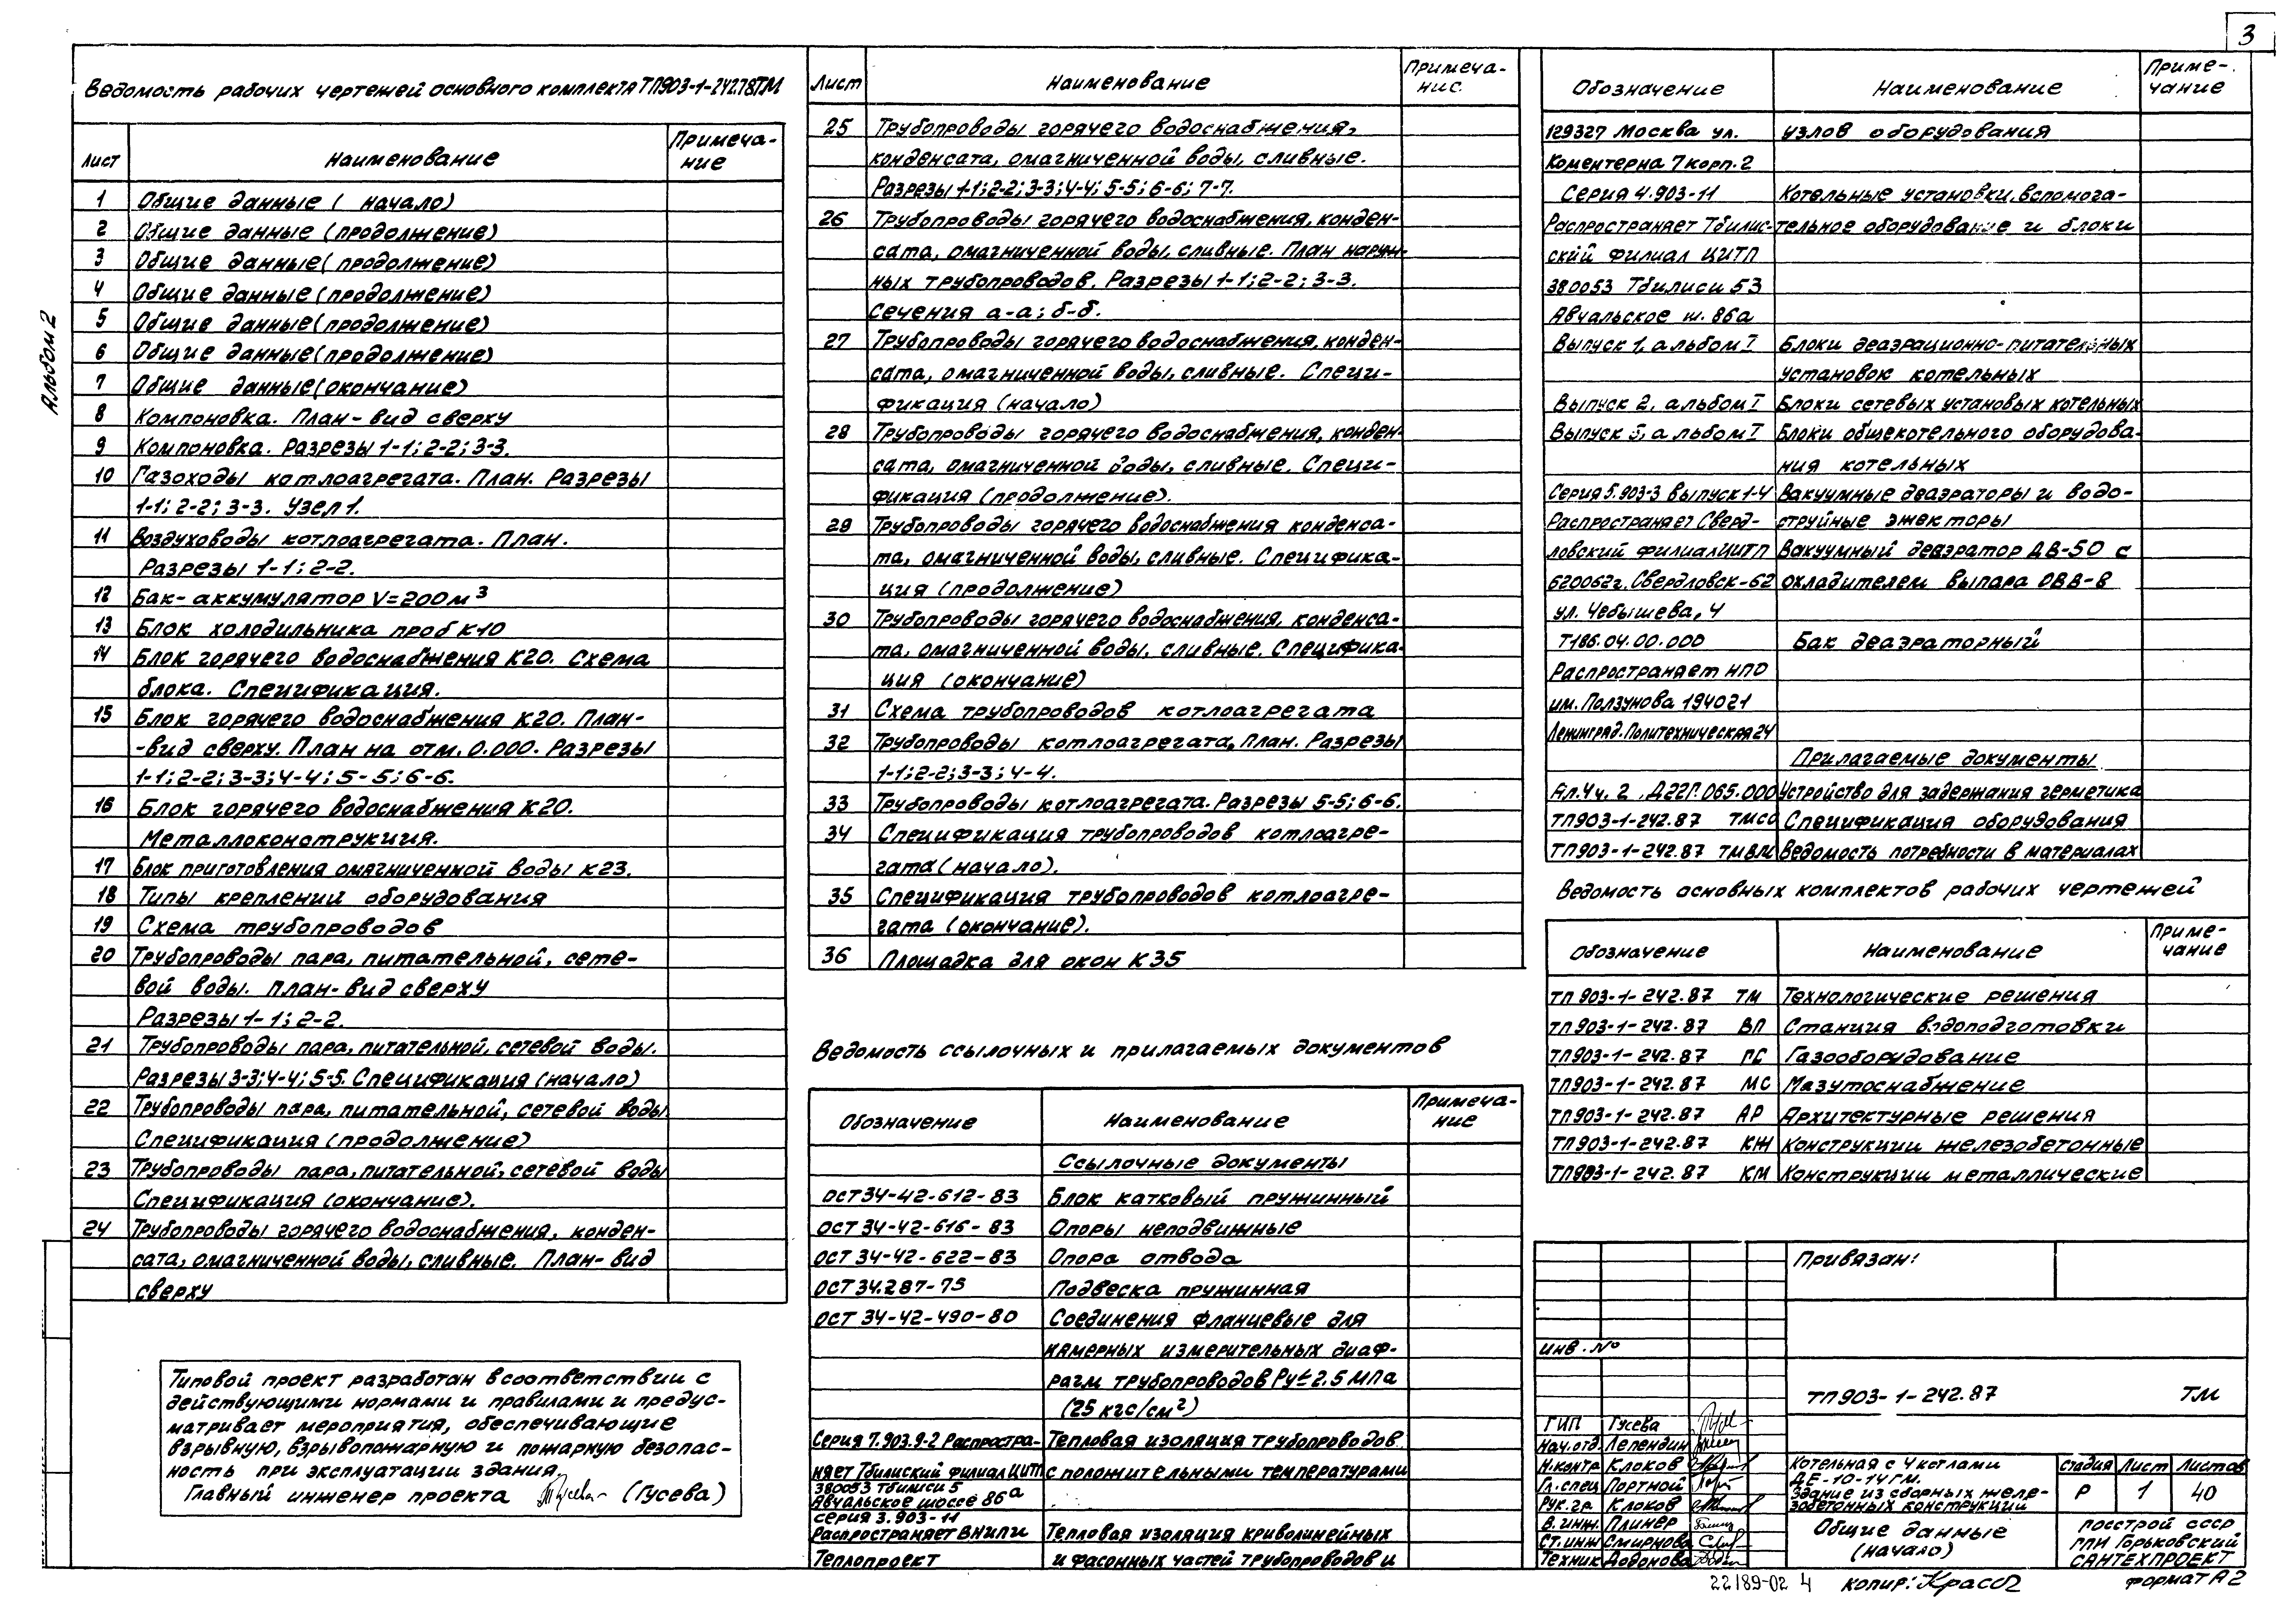 3
Альбом 2
Ведомость рабочих чертежей основного комплекта ТП903-1-242.78ТМ
Лист Наименование Примеча-
ние
1 Общие данные ( начало)
2 Общие данные (продолжение)
3 Общие данные( продолжение)
4 Общие данные (продолжение)
5 Общие данные(продолжение)
6 Общие данные(продолжение)
7 Общие данные(окончание)
8 Компоновка. План- вид сверху
9 Компоновка. Разрезы 1-1; 2-2; 3-3.
10 Газоходы котлоагрегата. План. Разрезы
1-1; 2-2; 3-3. Узел 1.
11 Воздуховоды котлоагрегата. План.
Разрезы 1-1; 2-2.
12 Бак- аккумулятор V=200м³
13 Блок холодильника проб К10
14 Блок горячего водоснабжения К20. Схема
блока. Спецификация.
15 Блок горячего водоснабжения К20. План-
-вид сверху. План на отм. 0.000. Разрезы
1-1; 2-2; 3-3; 4-4; 5-5; 6-6.
16 Блок горячего водоснабжения К20.
Металлоконструкция.
17 Блок приготовления омагниченной воды К23.
18 Типы креплений оборудования
19 Схема трубопроводов
20 Трубопроводы пара, питательной, сете-
вой воды. План- вид сверху
Разрезы 1-1; 2-2.
21 Трубопроводы пара, питательной, сетевой воды.
Разрезы 3-3; 4-4; 5-5. Спецификация (начало)
22 Трубопроводы пара, питательной, сетевой воды
Спецификация (продолжение)
23 Трубопроводы пара, питательной, сетевой воды
Спецификация (окончание).
24 Трубопроводы горячего водоснабжения, конден-
сата, омагниченной воды, сливные. План- вид
сверху
Типовой проект разработан в соответствии с
действующими нормами и правилами и предус-
матривает мероприятия, обеспечивающие
взрывную, взрывопожарную и пожарную безопас-
ность при эксплуатации здания.
Главный инженер проекта (Гусева)
Лист Наименование Примеча-
ние
25 Трубопроводы горячего водоснабжения,
конденсата, омагниченной воды, сливные.
Разрезы 1-1; 2-2; 3-3; 4-4; 5-5; 6-6; 7-7.
26 Трубопроводы горячего водоснабжения, конден-
сата, омагниченной воды, сливные. План наруж-
ных трубопроводов. Разрезы 1-1; 2-2; 3-3.
Сечения а-а; б-б.
27 Трубопроводы горячего водоснабжения, конден-
сата, омагниченной воды, сливные. Специ-
фикация (начало)
28 Трубопроводы горячего водоснабжения, конден-
сата, омагниченной воды, сливные. Специ-
фикация (продолжение).
29 Трубопроводы горячего водоснабжения конденса-
та, омагниченной воды, сливные. Специфика-
ция (продолжение)
30 Трубопроводы горячего водоснабжения, конденса-
та, омагниченной воды, сливные. Специфика-
ция (окончание)
31 Схема трубопроводов котлоагрегата
32 Трубопроводы котлоагрегата, План. Разрезы
1-1; 2-2; 3-3; 4-4.
33 Трубопроводы котлоагрегата. Разрезы 5-5; 6-6.
34 Спецификация трубопроводов котлоагре-
гата (начало).
35 Спецификация трубопроводов котлоагре-
гата (окончание).
36 Площадка для окон К35
Ведомость ссылочных и прилагаемых документов
Обозначение Наименование Примеча-
ние
Ссылочные документы
ОСТ 34-42-612-83 Блок катковый пружинный
ОСТ 34-42-616-83 Опоры неподвижные
ОСТ 34-42-622-83 Опора отвода
ОСТ 34.287-75 Подвеска пружинная
ОСТ 34-42-490-80 Соединения фланцевые для
камерных измерительных диаф-
рагм трубопроводов Ру≤2.5 МПа
(25 кгс/см²)
Серия 7.903.9-2 Распростра- Тепловая изоляция трубопроводов
няет Тбилиский филиал ЦИТП с положительными температурами
380053 Тбилиси 5
Авчальское шоссе 86а
серия 3.903-11
Распространяет ВНИПИ Тепловая изоляция криволинейных
Теплопроект и фасонных частей трубопроводов и
Обозначение Наименование Приме-
чание
129327 Москва ул. узлов оборудования
Коментерна 7 корп. 2
Серия 4.903-11 Котельные установки, вспомога-
Распространяет Тбилис- тельное оборудование и блоки
ский филиал ЦИТП
380053 Тбилиси 53
Авчальское ш. 86а
Выпуск 1, альбом I Блоки деаэрационно-питательных
установок котельных
Выпуск 2, альбом I Блоки сетевых установых котельных
Выпуск 3, альбом I Блоки общекотельного оборудова-
ния котельных
Серия 5.903-3 выпуск 1-4 Вакуумные деаэраторы и водо-
Распространяет Сверд- струйные эжекторы
ловский филиал ЦИТП Вакуумный деаэратор ДВ-50 с
620062г. Свердловск-62 охладителем выпара ОВВ-8
ул. Чебышева, 4
Т186.04.00.000 Бак деаэраторный
Распространяет НПО
им. Ползунова 194021
Ленинград. Политехническая 24
Прилагаемые документы
Ал.4 ч. 2 , Д22Г.065.000 Устройство для задержания герметика
ТП903-1-242.87 ТМСО Спецификация оборудования
ТП903-1-242.87 ТМВМ Ведомость потребности в материалах
Ведомость основных комплектов рабочих чертежей
Обозначение Наименование Приме-
чание
ТП 903-1-242.87 ТМ Технологические решения
ТП903-1-242.87 ВП Станция водоподготовки
ТП903-1-242.87 ГС Газооборудование
ТП903-1-242.87 МС Мазутоснабжение
ТП903-1-242.87 АР Архитектурные решения
ТП903-1-242.87 КЖ Конструкции железобетонные
ТП903-1-242.87 КМ Конструкции металлические
Привязан:
Инв. №
ТП903-1-242.87 ТМ
ГИП Гусева
Нач. отд. Лепендин
Н.контр Клоков
Гл. спец Портной
Рук. гр. Клоков
В. инж. Плинер
Ст. инж Смирнова
Техник Додонова
Котельная с 4 котлами
ДЕ-10-14ГМ.
Здание из сборных желе-
зобетонных конструкции
стадия Лист Листов
Р 1 40
Общие данные
(начало)
Госстрой СССР
ГПИ Горьковский
САНТЕХПРОЕКТ
22189-02 4 копир: формат А2